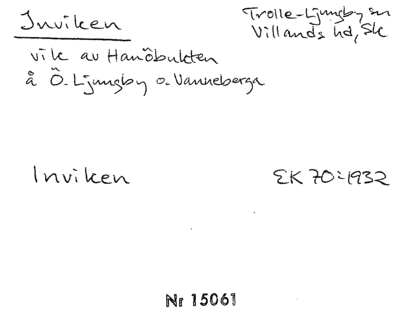 Inviken
Trolle-Ljungby sn
Villands hd, Sk
vik av Hanöbukten
å Ö. Ljungby o. Vanneberga
Inviken
EK 70:1932
Nr 15061